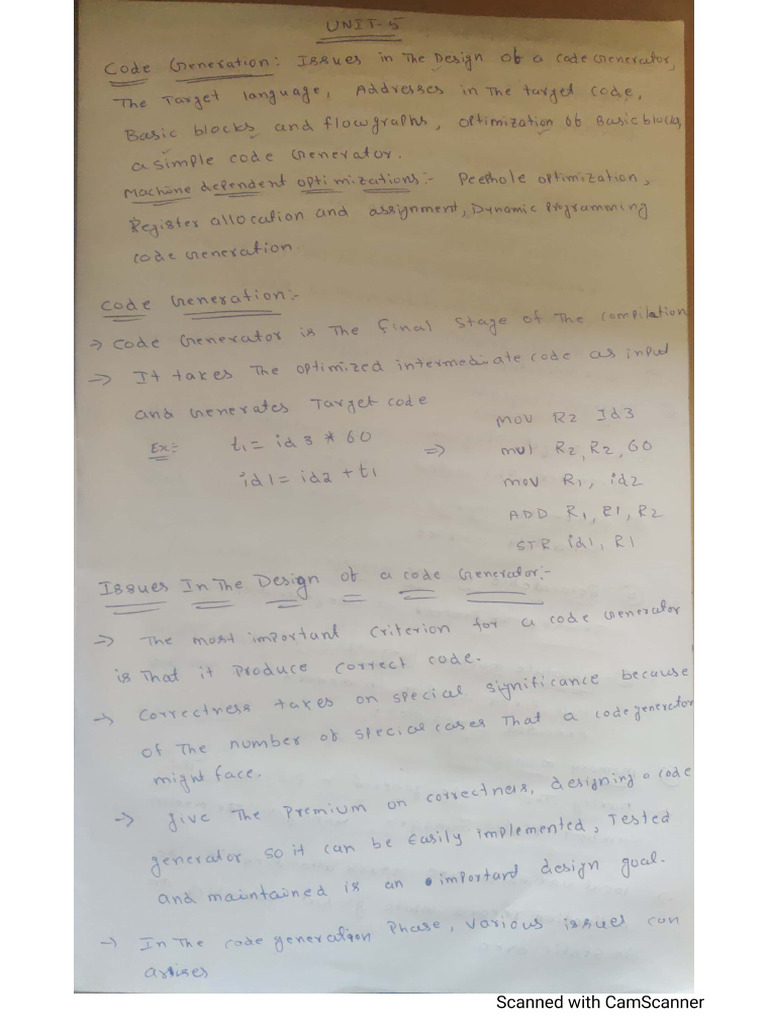 UNIT-5
Code Generation: Issues in The Design of a code Generator,
The Target language, Addresses in The target code,
Basic blocks and flowgraphs, optimization of Basic blocks,
a simple code Generator.
Machine dependent optimizations:- Peephole optimization,
Register allocation and assignment, Dynamic Programming
code Generation
Code Generation:-
→ Code Generator is The final stage of The compilation
→ It takes The optimized intermediate code as input
and Generates Target code
Ex:- t1 = id 3 * 60 ⇒
id1 = id2 + t1
mov R2 Id3
mul R2, R2, 60
mov R1, id2
ADD R1, R1, R2
STR id1, R1
Issues In The Design of a code Generator:-
→ The most important criterion for a code Generator
is That it produce correct code.
→ Correctness takes on special significance because
of The number of special cases That a code generator
might face.
→ give The Premium on correctness, designing a code
generator so it can be Easily implemented, Tested
and maintained is an important design goal.
→ In The code generation Phase, various issues can
arises
Scanned with CamScanner